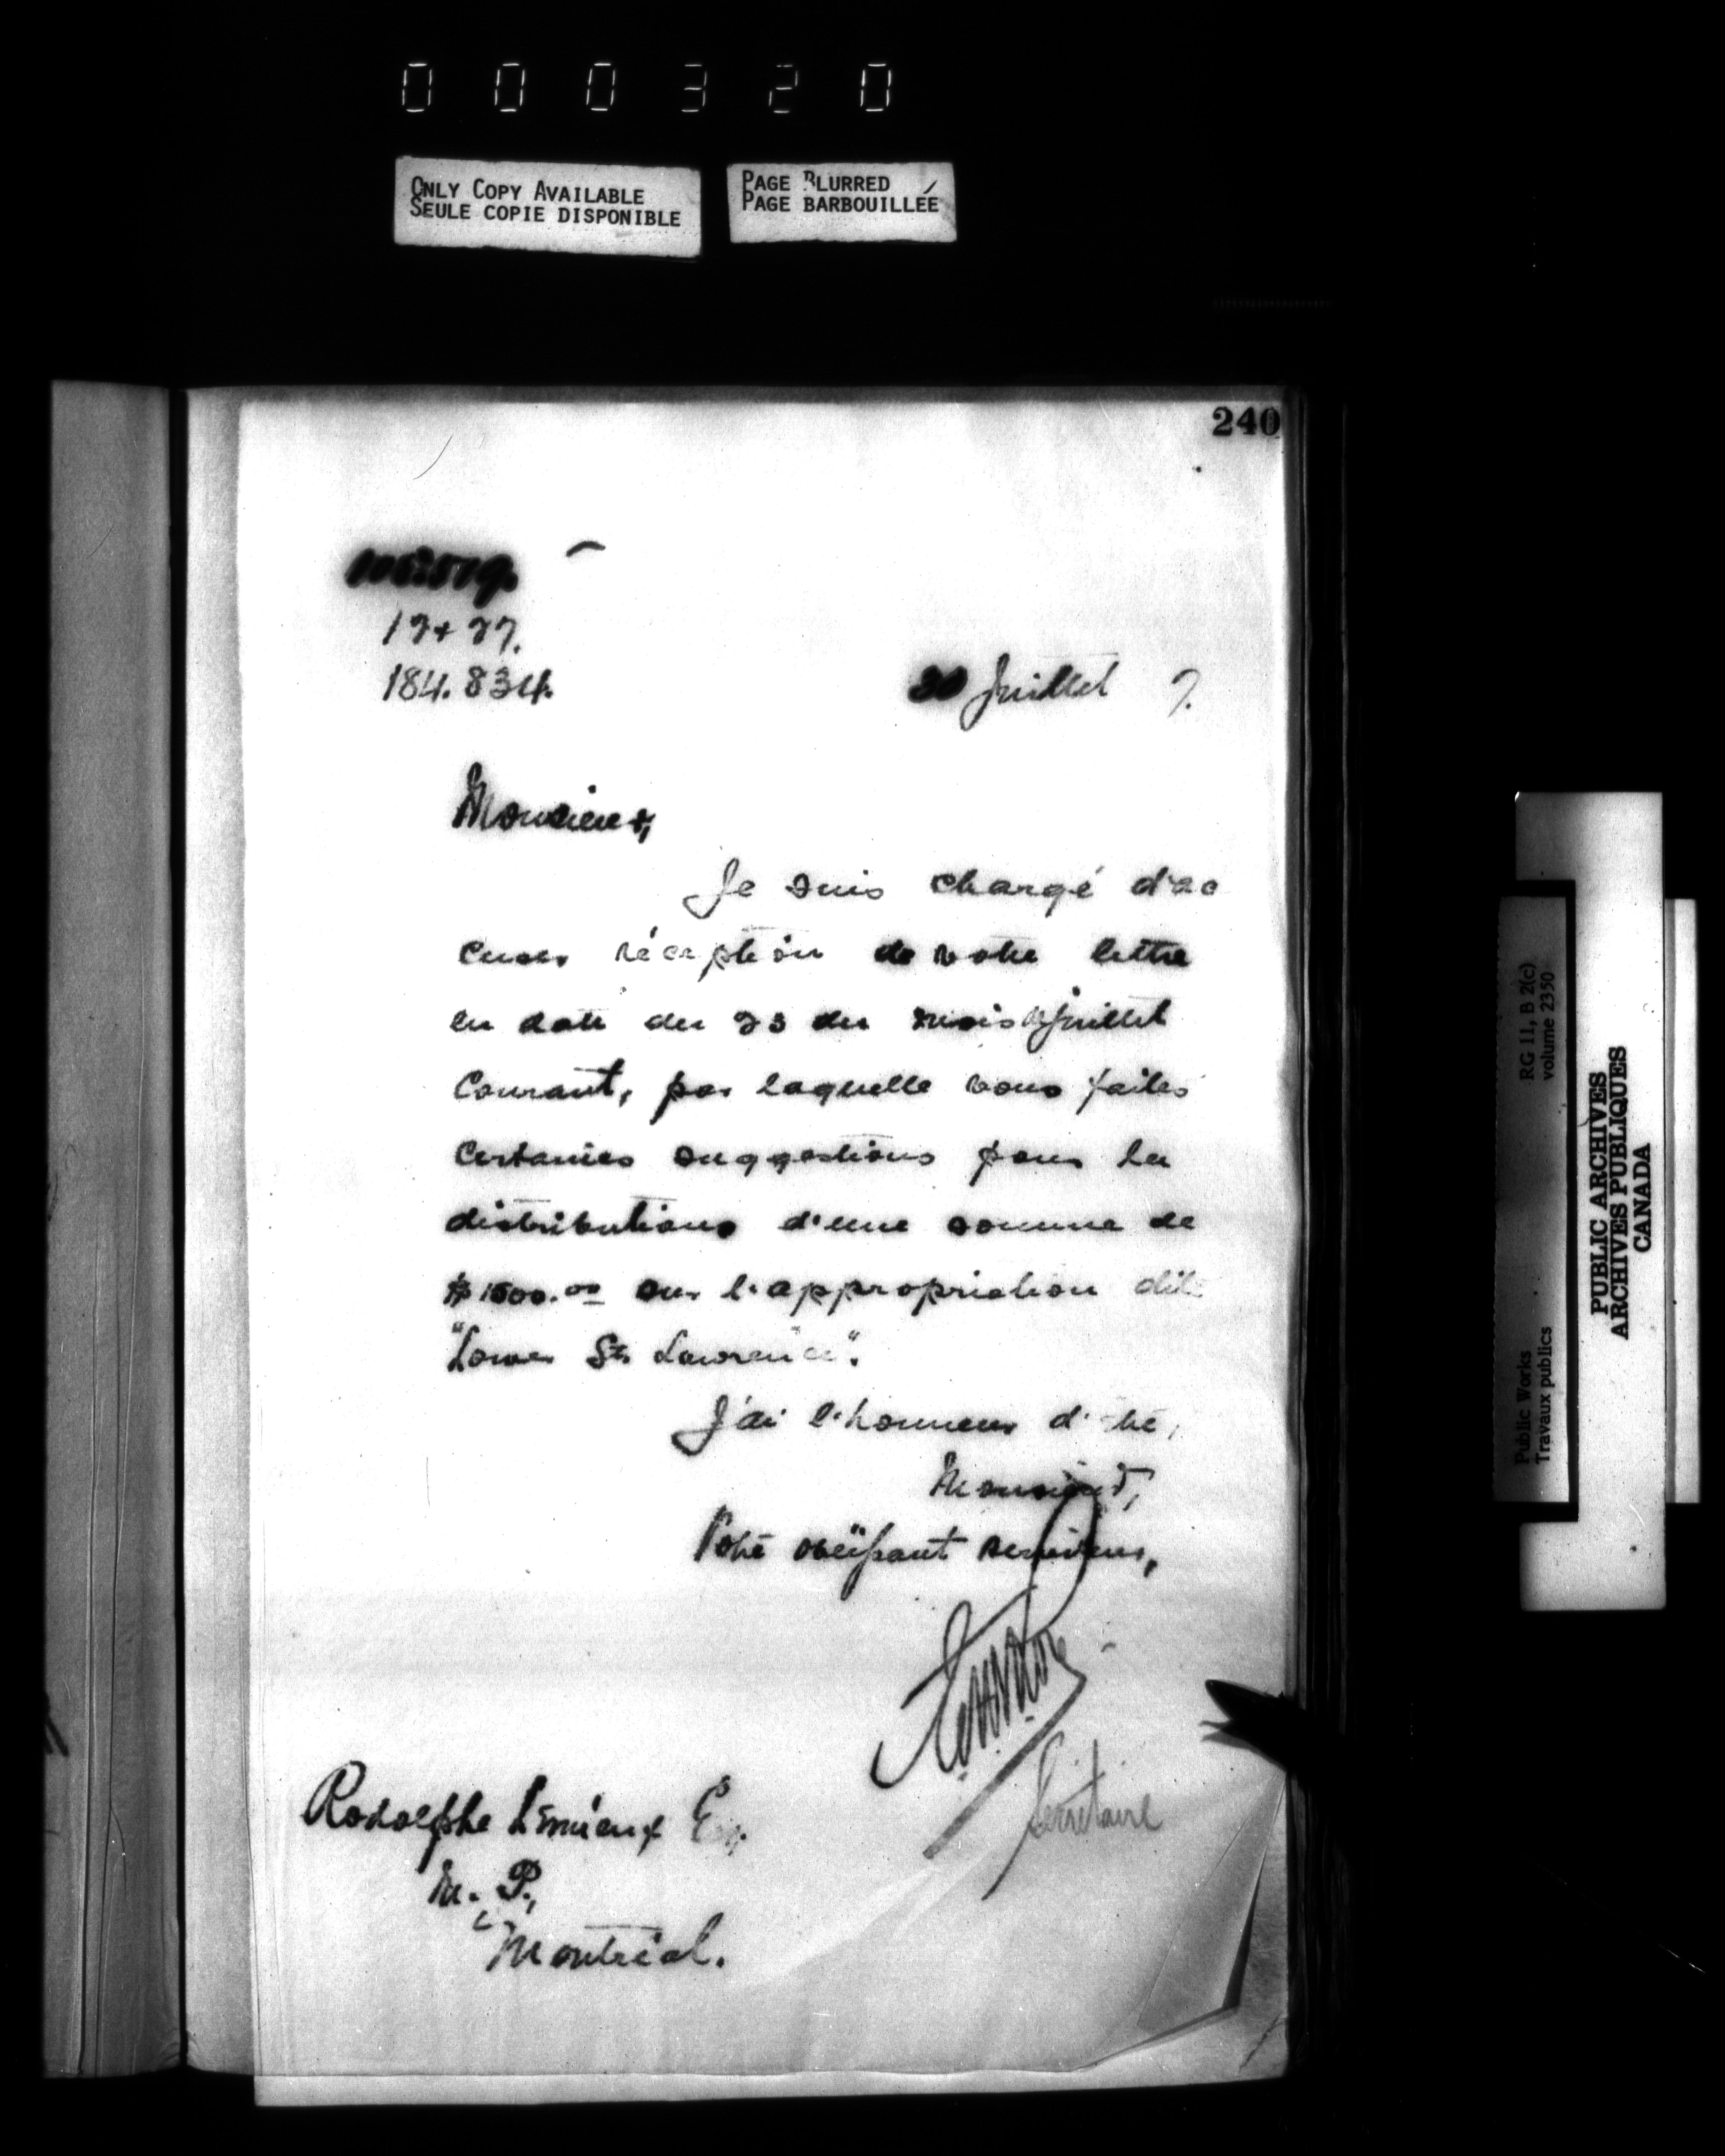 000320
ONLY COPY AVAILABLE
SEULE COPIE DISPONIBLE
PAGE BLURRED
PAGE BARBOUILLÉE
240
184.834.
30 Juillet 7.
Monsieur,
Je suis chargé d'ac
cuser réception de votre lettre
en date du 23 du mois de juillet
Courant, par laquelle vous faites
Certaines suggestions pour la
distributions d'une somme de
$1500.00 sur l'appropriation dite
"Lower St. Lawrence".
J'ai l'honneur d'être,
Monsieur,
Votre obéissant serviteur,
Secrétaire
Rodolphe Lemieux Esq.
M. P.,
Montréal.
Public Works
Travaux publics
RG 11, B 2(c)
volume 2350
PUBLIC ARCHIVES
ARCHIVES PUBLIQUES
CANADA